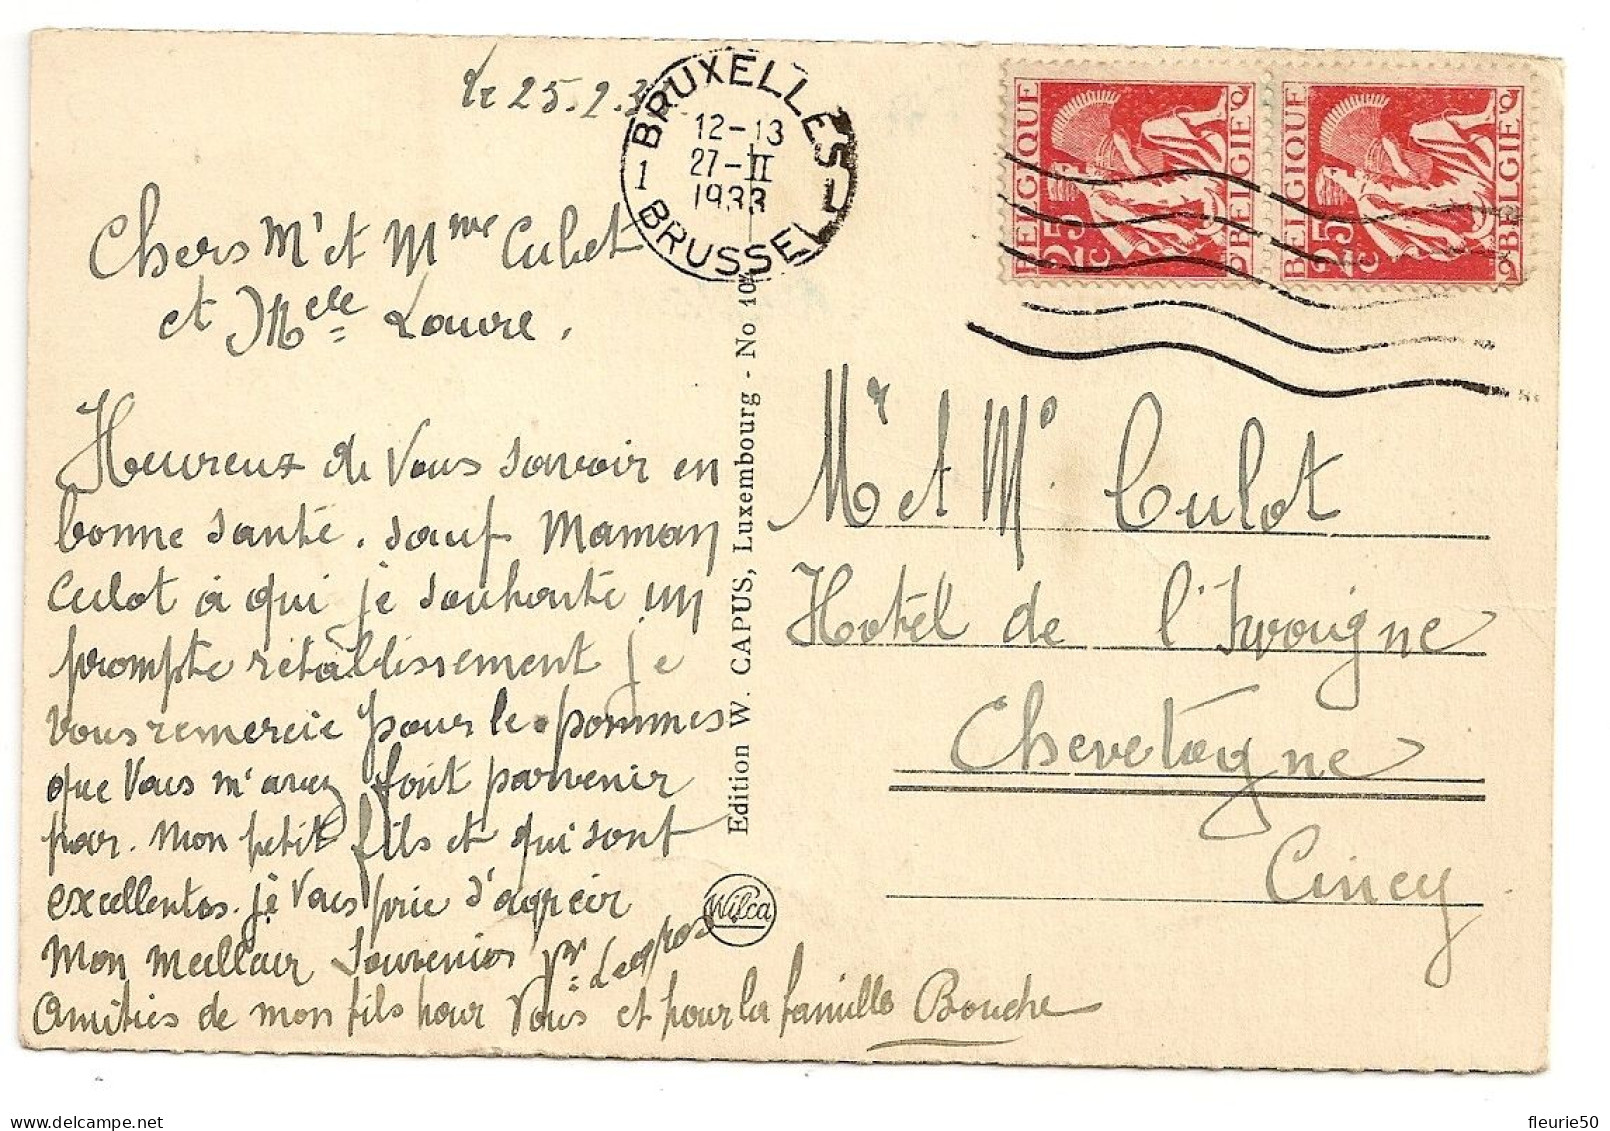 Le 25.2.33
BRUXELLES 1
1 BRUSSEL
12-13
27-II
1933
BELGIQUE
25 c
BELGIE
BELGIQUE
25 c
BELGIE
Chers Mr et Mme Culot
et Melle Laure.
Heureux de vous savoir en
bonne santé. sauf Maman
Culot à qui je souhaite un
prompte rétablissement je
vous remercie pour le pommes
que vous m'avez fait parvenir
par. mon petit fils et qui sont
excellentes. je vous prie d'agréér
mon meillair souvenirs Vr. Legros
Amitiés de mon fils pour vous et pour la famille Bouche
Edition W. CAPUS, Luxembourg - No 10
Wilca
Mr et Me Culot
Hotél de l'Ivoigne
Chevetogne
Ciney
fleurie50